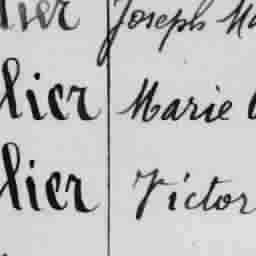 lier Joseph Ma
lier Marie
lier Victor